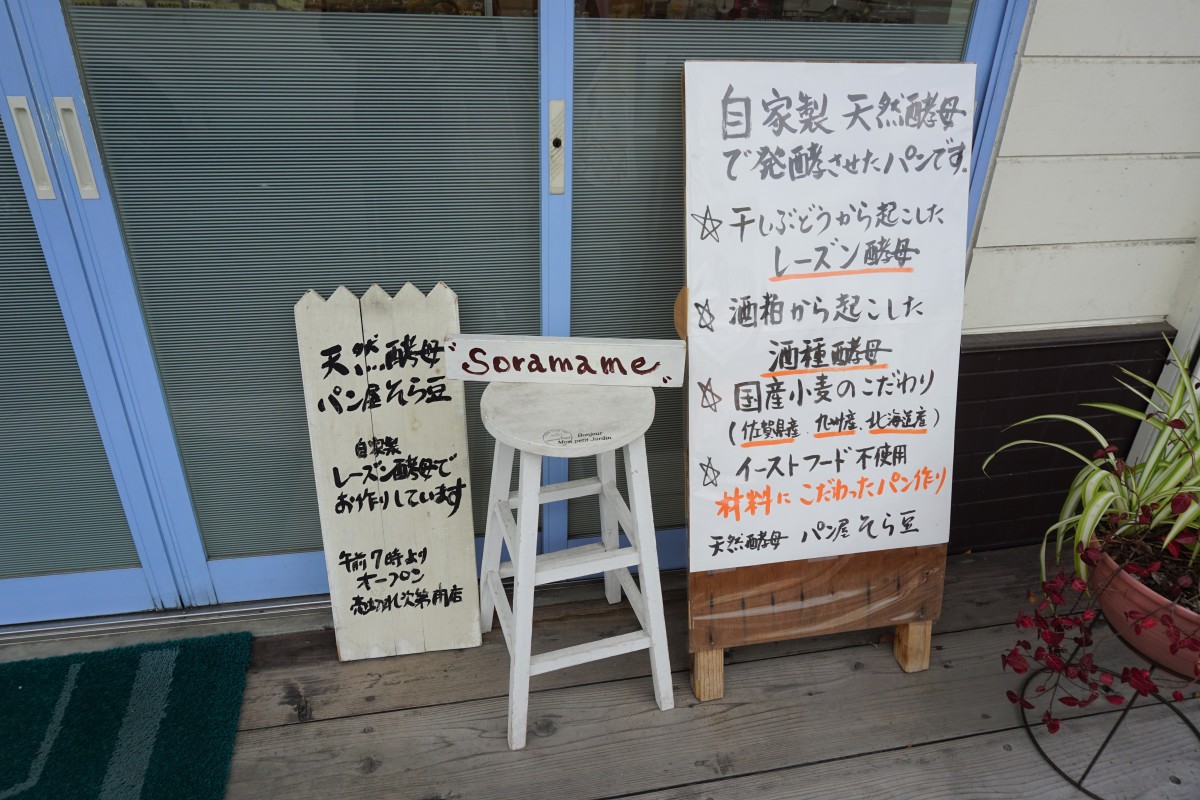 天然酵母
パン屋 そら豆
自家製
レーズン酵母で
お作りしています
午前7時より
オープン
売切れ次第閉店
"Soramame"
Bonjour
Mon petit Jardin
自家製 天然酵母
で発酵させたパンです。
☆干しぶどうから起こした
レーズン酵母
☆酒粕から起こした
酒種酵母
☆国産小麦のこだわり
(佐賀県産、九州産、北海道産)
☆イーストフード不使用
材料にこだわったパン作り
天然酵母 パン屋 そら豆